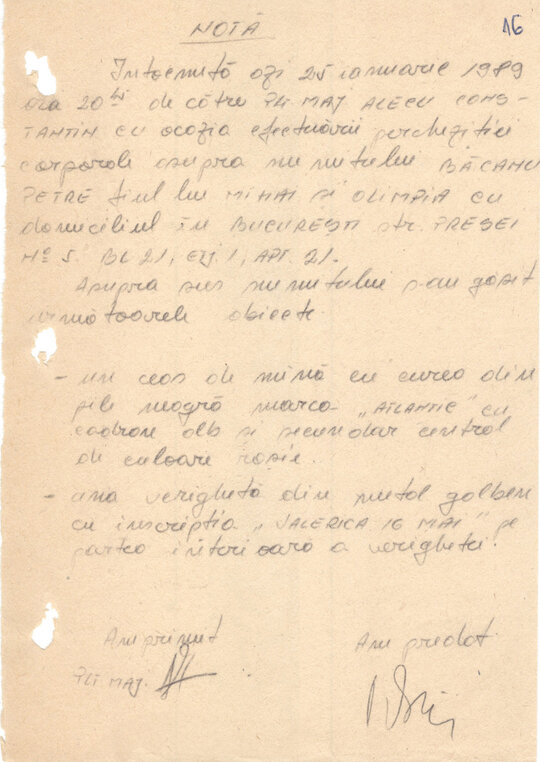 16
NOTĂ
Întocmită azi 25 ianuarie 1989
ora 20 de către PLT MAJ ALECU CONS-
TANTIN cu ocazia efectuării percheziției
corporale asupra numitului BĂCANU
PETRE fiul lui MIHAI și OLIMPIA cu
domiciliul în BUCUREȘTI str. PRESEI
Nº 5. BL 21, ETJ 1, APT. 21.
Asupra sus numitului s-au găsit
următoarele obiecte
- un ceas de mînă cu curea din
piele neagră marca „ATLANTIC" cu
cadran alb și secundar central
de culoare roșie.
- una verighetă din metal galben
cu inscripția „VALERICA 16 MAI" pe
partea interioară a verighetei.
Am primit
Am predat
PLT MAJ.